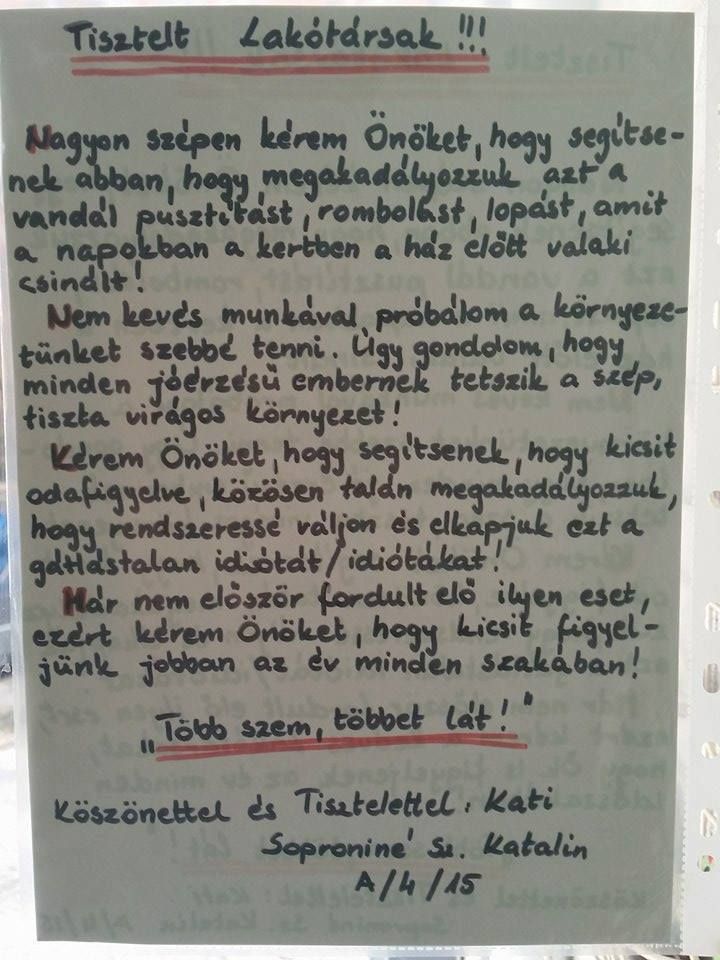 Tisztelt Lakótársak!!!
Nagyon szépen kérem Önöket, hogy segítse-
nek abban, hogy megakadályozzuk azt a
vandál pusztítást, rombolást, lopást, amit
a napokban a kertben a ház előtt valaki
csinált!
Nem kevés munkával próbálom a környeze-
tünket szebbé tenni. Úgy gondolom, hogy
minden jóérzésű embernek tetszik a szép,
tiszta virágos környezet!
Kérem Önöket, hogy segítsenek, hogy kicsit
odafigyelve, közösen talán megakadályozzuk,
hogy rendszeressé váljon és elkapjuk ezt a
gátlástalan idiótát/idiótákat!
Már nem először fordult elő ilyen eset,
ezért kérem Önöket, hogy kicsit figyel-
jünk jobban az év minden szakában!
„Több szem, többet lát!"
Köszönettel és Tisztelettel: Kati
Soproniné Sz. Katalin
A/4/15